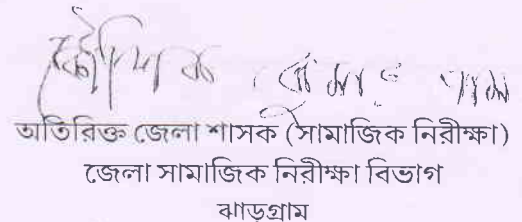 কৌশিক কুমার পাল
অতিরিক্ত জেলা শাসক (সামাজিক নিরীক্ষা)
জেলা সামাজিক নিরীক্ষা বিভাগ
ঝাড়গ্রাম